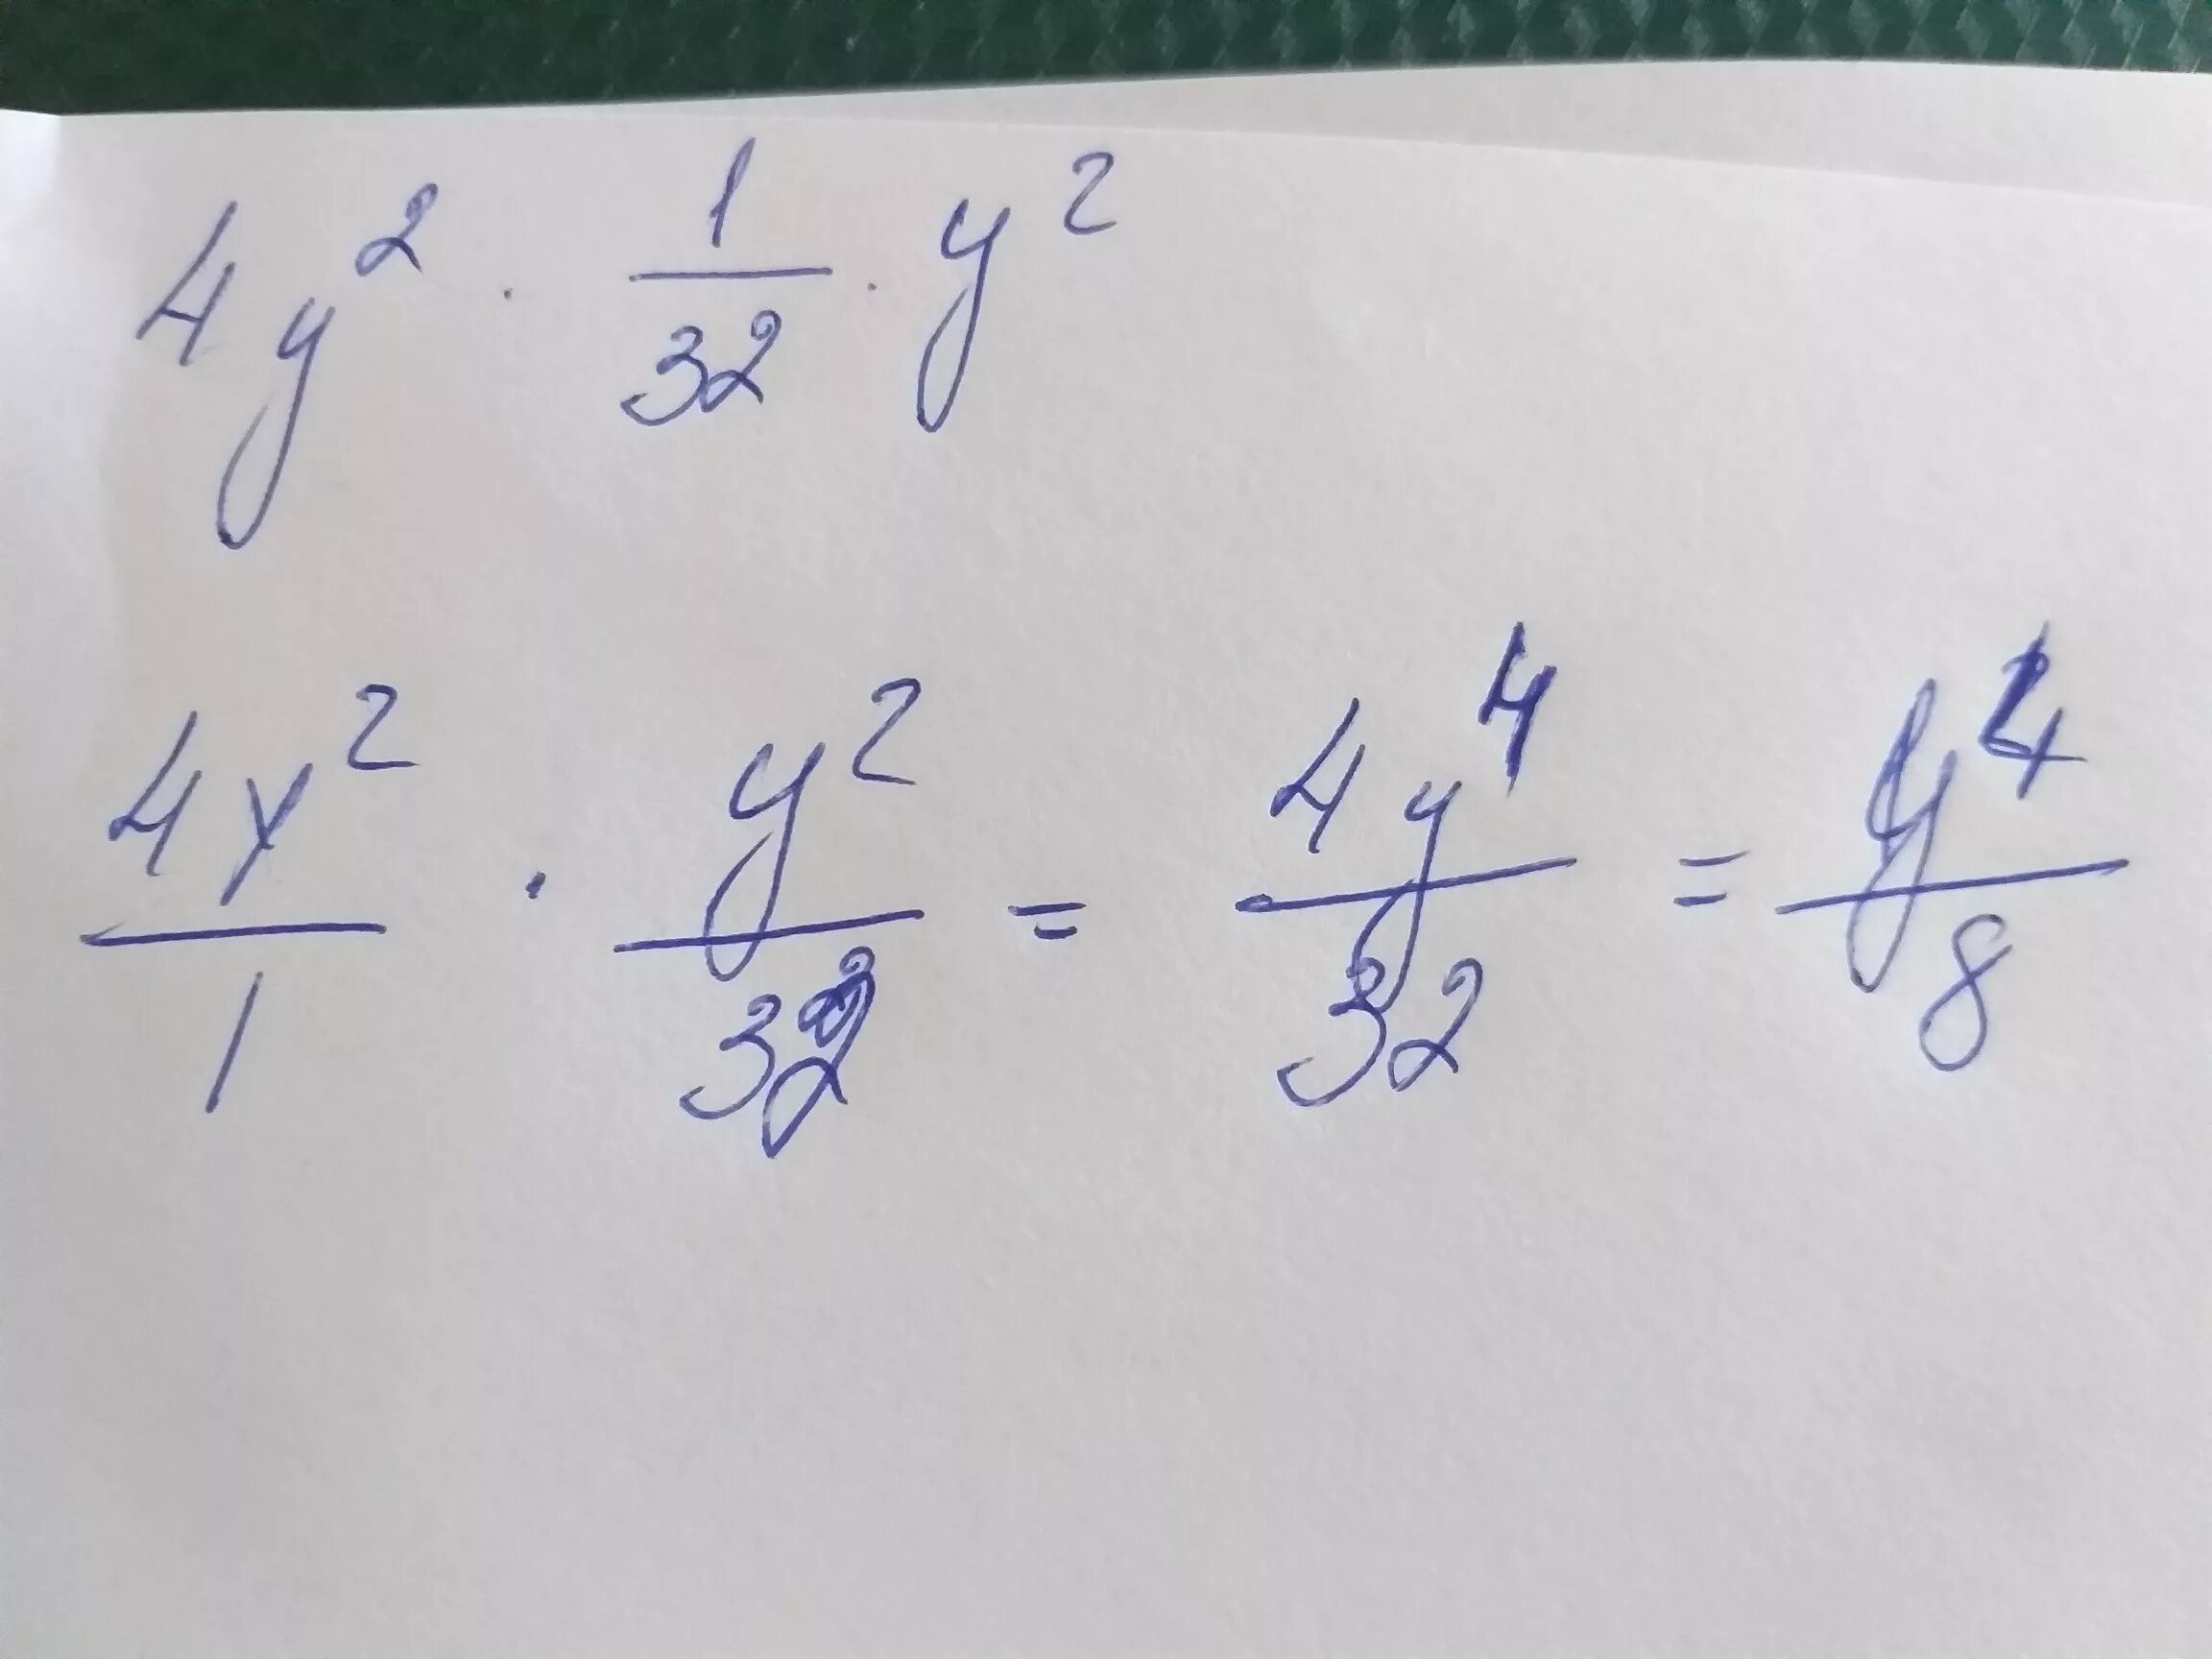 4y² · 1/32 · y²
4y²/1 · y²/32 = 4y⁴/32 = y⁴/8